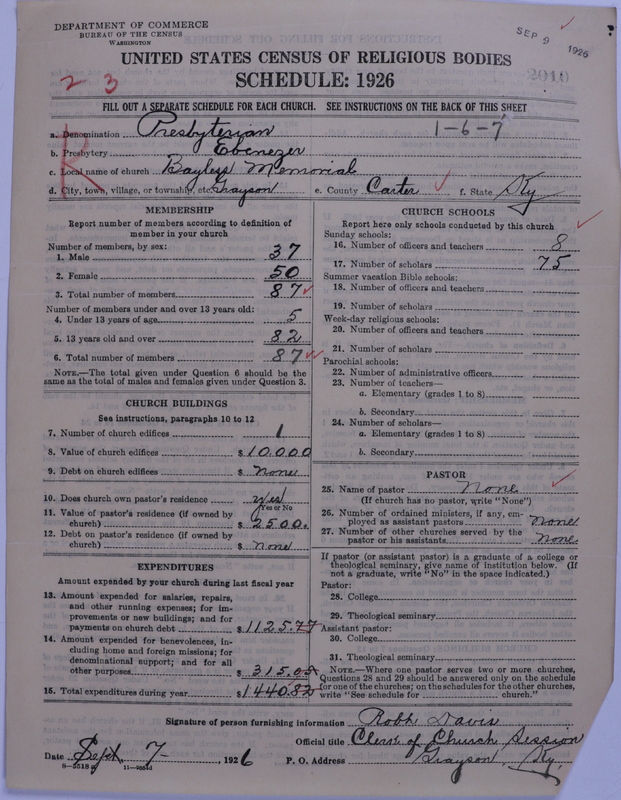 DEPARTMENT OF COMMERCE
BUREAU OF THE CENSUS
WASHINGTON
SEP 9 1926
UNITED STATES CENSUS OF RELIGIOUS BODIES
SCHEDULE: 1926
2 3
FILL OUT A SEPARATE SCHEDULE FOR EACH CHURCH. SEE INSTRUCTIONS ON THE BACK OF THIS SHEET
R
a. Denomination Presbyterian 1-6-7
b. Presbytery Ebenezer
c. Local name of church Bayless Memorial
d. City, town, village, or township, etc. Grayson e. County Carter f. State Ky
MEMBERSHIP
Report number of members according to definition of
member in your church
Number of members, by sex:
1. Male 37
2. Female 50
3. Total number of members 87
Number of members under and over 13 years old:
4. Under 13 years of age 5
5. 13 years old and over 82
6. Total number of members 87
NOTE.—The total given under Question 6 should be
same as the total of males and females given under Question 3.
CHURCH BUILDINGS
See instructions, paragraphs 10 to 12
7. Number of church edifices 1
8. Value of church edifices $ 10.000
9. Debt on church edifices $ None
10. Does church own pastor's residence yes
Yes or No
11. Value of pastor's residence (if owned by
church) $ 2500.
12. Debt on pastor's residence (if owned by
church) $ None
EXPENDITURES
Amount expended by your church during last fiscal year
13. Amount expended for salaries, repairs,
and other running expenses; for im-
provements or new buildings; and for
payments on church debt $ 1125.77
14. Amount expended for benevolences, in-
cluding home and foreign missions; for
denominational support; and for all
other purposes $ 315.05
15. Total expenditures during year $ 1440.82
CHURCH SCHOOLS
Report here only schools conducted by this church
Sunday schools:
16. Number of officers and teachers 8
17. Number of scholars 75
Summer vacation Bible schools:
18. Number of officers and teachers
19. Number of scholars
Week-day religious schools:
20. Number of officers and teachers
21. Number of scholars
Parochial schools:
22. Number of administrative officers
23. Number of teachers—
a. Elementary (grades 1 to 8)
b. Secondary
24. Number of scholars—
a. Elementary (grades 1 to 8)
b. Secondary
PASTOR
25. Name of pastor None
(If church has no pastor, write "None")
26. Number of ordained ministers, if any, em-
ployed as assistant pastors None
27. Number of other churches served by the
pastor or his assistants None
If pastor (or assistant pastor) is a graduate of a college or
theological seminary, give name of institution below. (If
not a graduate, write "No" in the space indicated.)
Pastor:
28. College
29. Theological seminary
Assistant pastor:
30. College
31. Theological seminary
NOTE.—Where one pastor serves two or more churches,
Questions 28 and 29 should be answered only on the schedule
for one of the churches; on the schedules for the other churches,
write "See schedule for church."
Signature of person furnishing information Robt Davis
Official title Clerk of Church Session
Date Sept. 7-, 1926 P. O. Address Grayson, Ky.